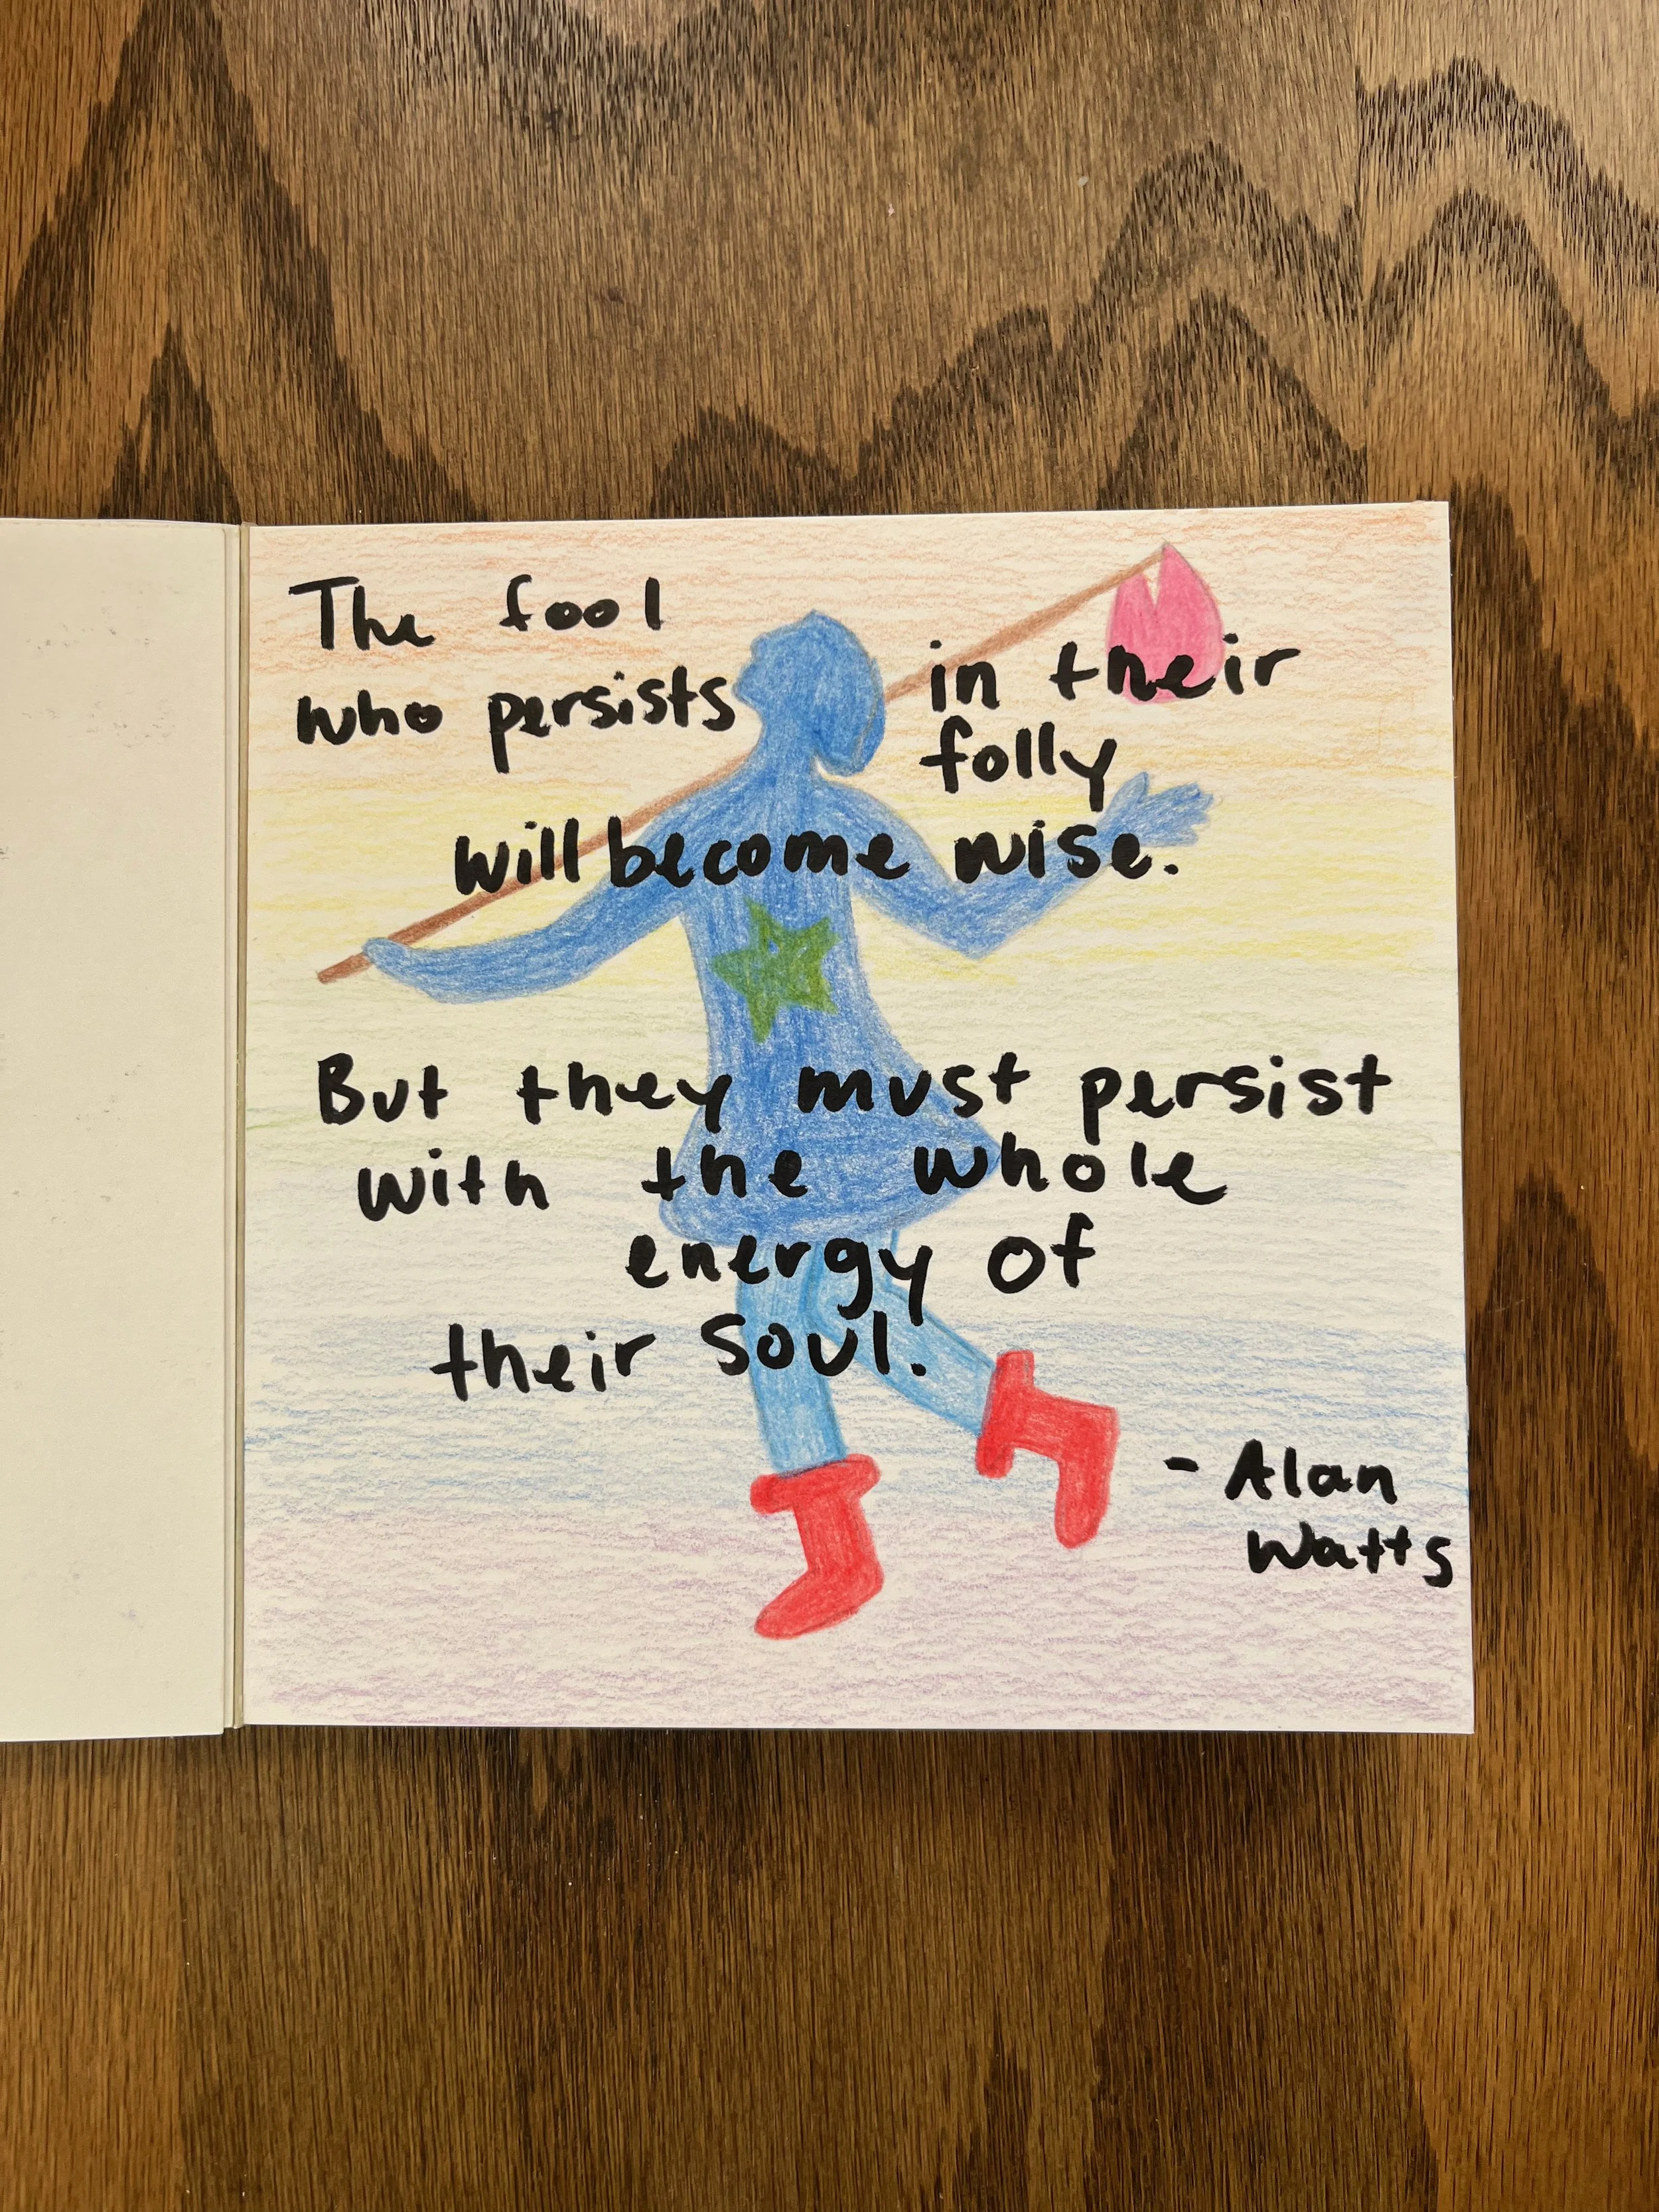 The fool
who persists in their
folly
will become wise.
But they must persist
with the whole
energy of
their soul.
- Alan
Watts